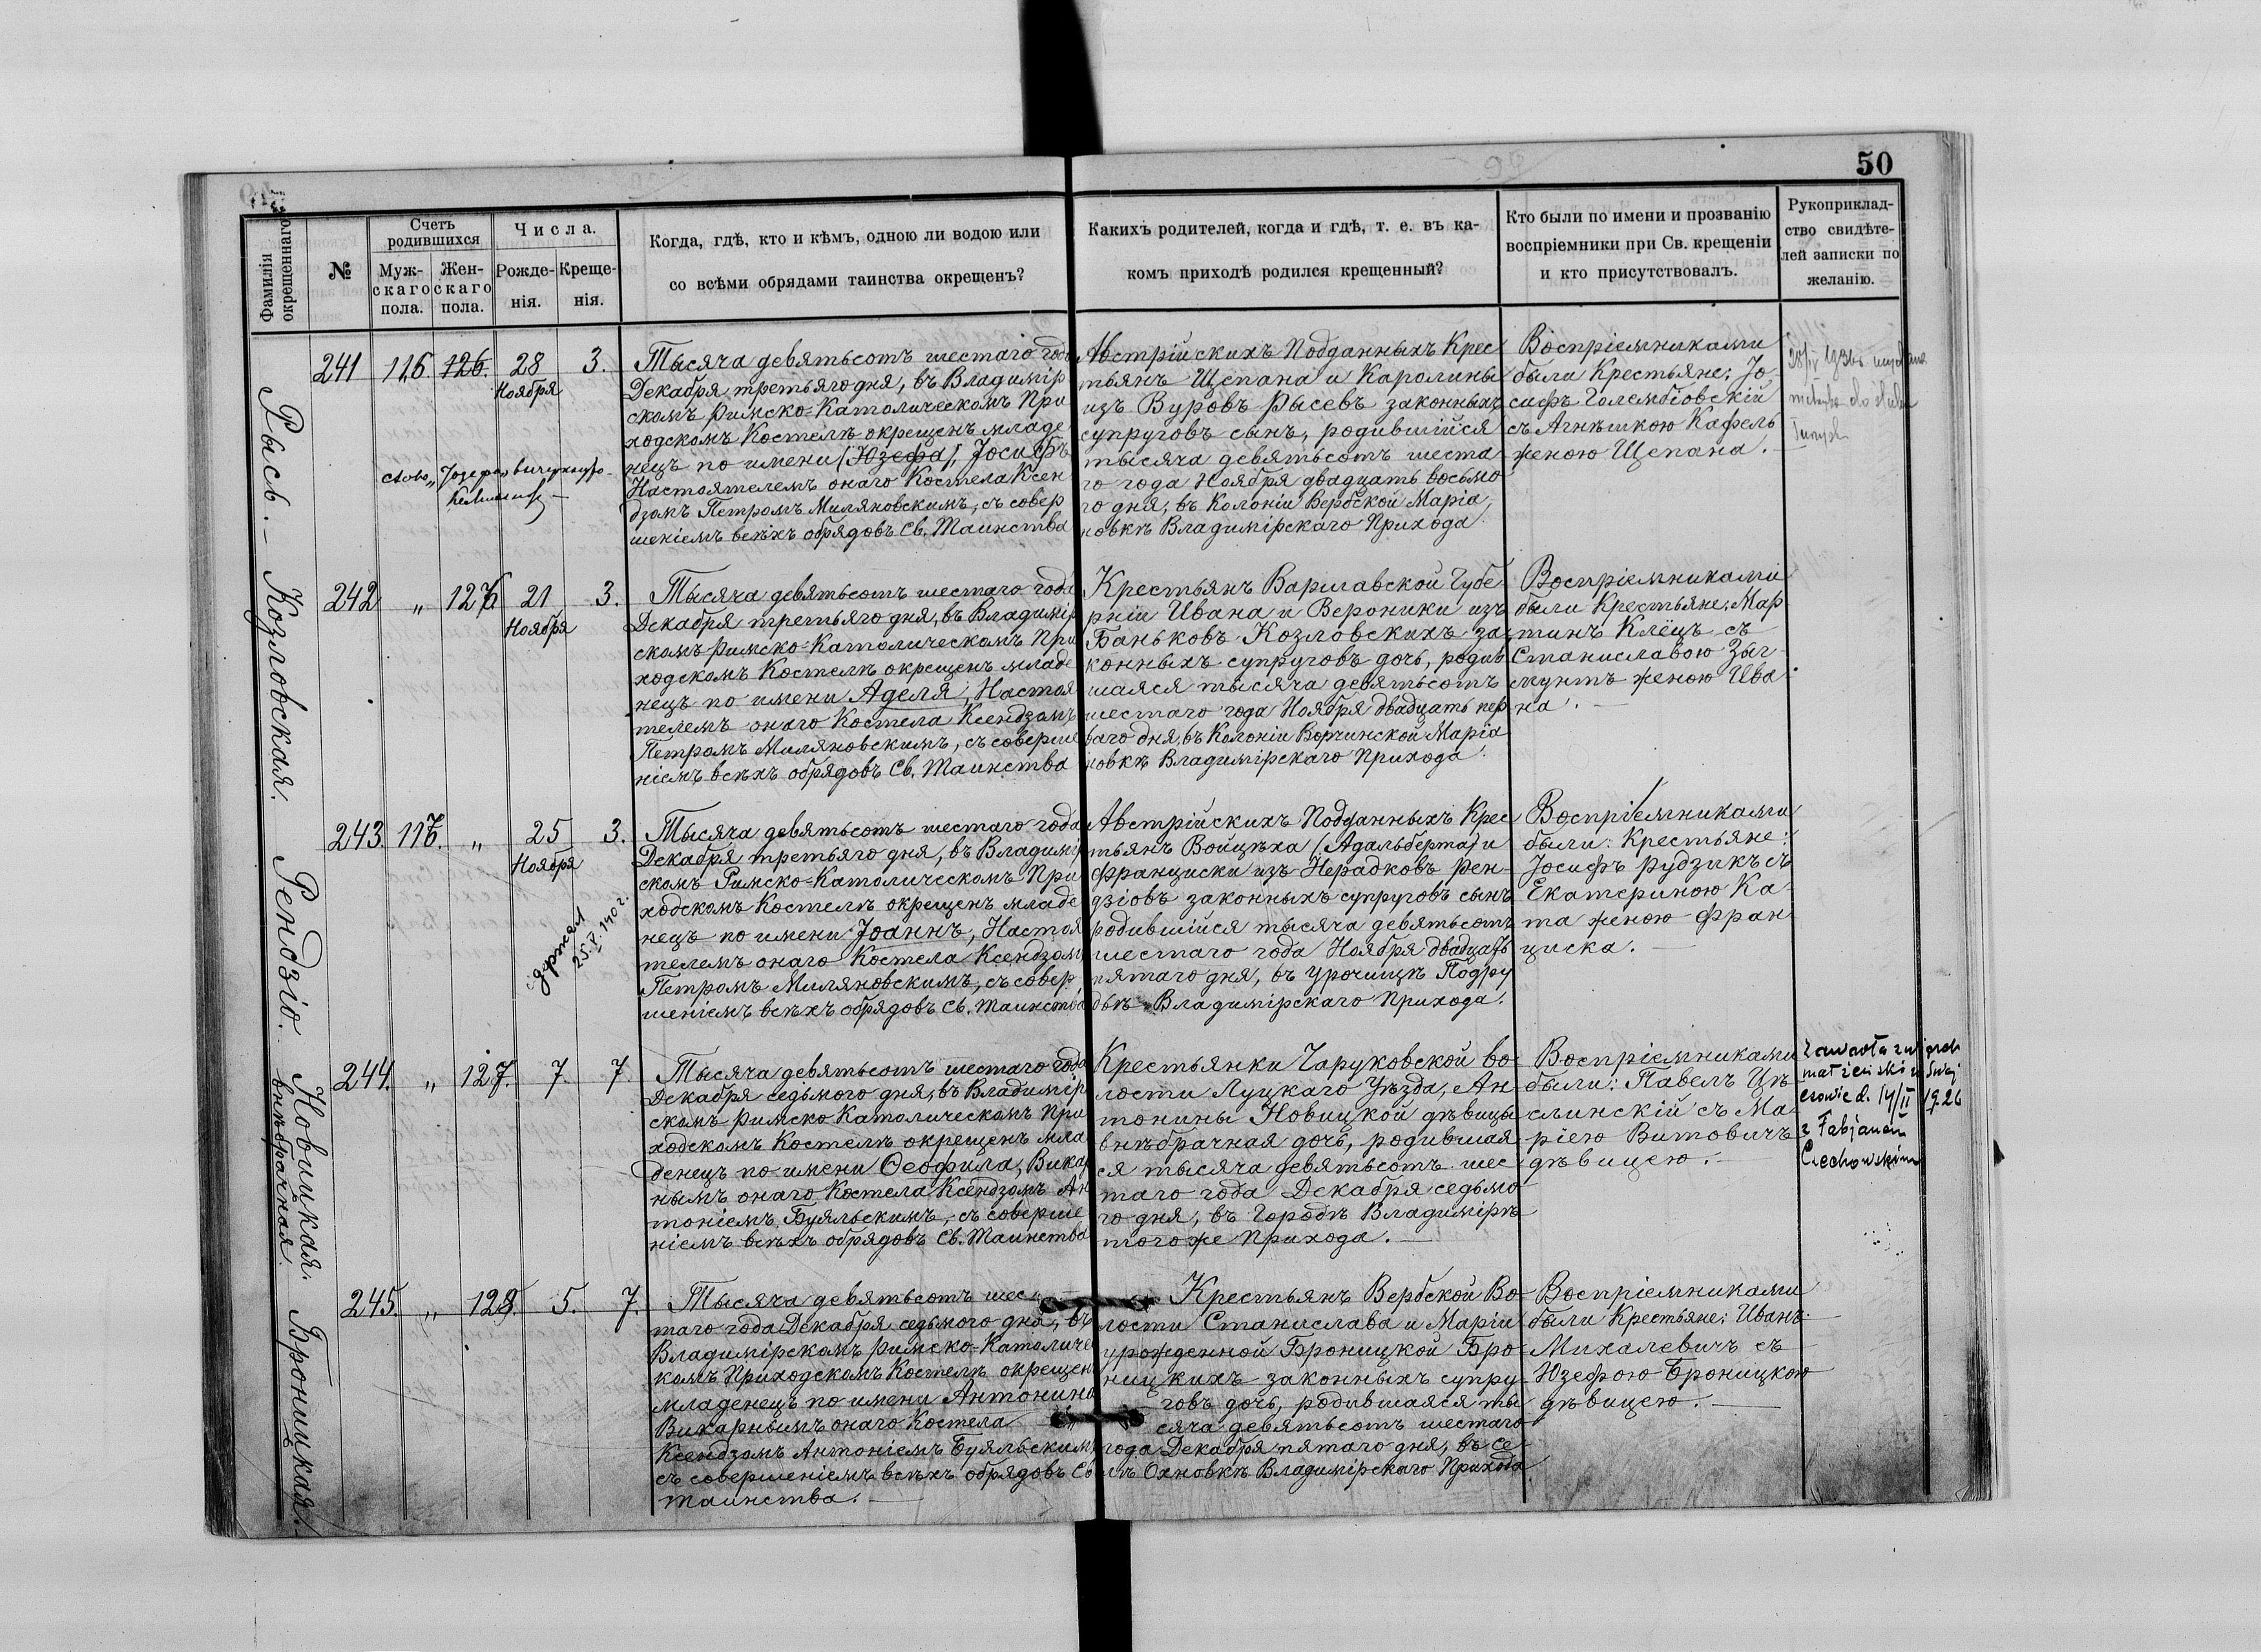 50
Фамилія окрещеннаго.
№
Счетъ родившихся
Муж-
скаго
пола.
Жен-
скаго
пола.
Числа.
Рожде-
нія.
Креще-
нія.
Когда, гдѣ, кто и кѣмъ, одною ли водою или
со всѣми обрядами таинства окрещенъ?
Какихъ родителей, когда и гдѣ, т. е. въ ка-
комъ приходѣ родился крещенный?
Кто были по имени и прозванію
воспріемники при Св. крещеніи
и кто присутствовалъ.
Рукоприклад-
ство свидѣте-
лей записки по
желанію.
Рысь.
241 116. 126. 28 3.
Ноября
слово „Юзефа„ вычеркнуто
Тысяча девятьсотъ шестаго года
Декабря третьяго дня, въ Владимір
скомъ Римско-Католическомъ При
ходскомъ Костелѣ окрещенъ младе
нецъ по имени (Юзефа), Іосифъ
Настоятелемъ онаго Костела Ксен
дзомъ Петромъ Миляновскимъ, съ совер
шеніемъ всѣхъ обрядовъ Св. Таинства
Австрійскихъ Подданныхъ Крес
тьянъ Щепана и Каролины
изъ Вуровъ Рысевъ законныхъ
супруговъ сынъ, родившійся
тысяча девятьсотъ шеста
го года Ноября двадцать восьмо
го дня, въ Колоніи Вербской Маріа
новкѣ Владимірскаго Прихода
Воспріемниками
были Крестьяне: Іо
сифъ Голембіовскій
съ Агнѣшкою Кафель
женою Щепана.
Козловская.
242 „ 126 21 3.
Ноября
Тысяча девятьсотъ шестаго года
Декабря третьяго дня, въ Владимір
скомъ Римско-Католическомъ При
ходскомъ Костелѣ окрещенъ младе
нецъ по имени Аделя, Настоя
телемъ онаго Костела Ксендзомъ
Петромъ Миляновскимъ, съ соверше
ніемъ всѣхъ обрядовъ Св. Таинства
Крестьянъ Варшавской Губе
рніи Ивана и Вероники изъ
Баньковъ Козловскихъ за
конныхъ супруговъ дочь, родив
шаяся тысяча девятьсотъ
шестаго года Ноября двадцать пер
ваго дня, въ Колоніи Ворчинской Маріа
новкѣ Владимірскаго Прихода
Воспріемниками
были Крестьяне: Мар
тинъ Клёцъ съ
Станиславою Зыг
мунтъ женою Ива
на.
Рендзіо.
243. 117. „ 25 3.
Ноября
25.V.1940 г.
Тысяча девятьсотъ шестаго года
Декабря третьяго дня, въ Владимір
скомъ Римско-Католическомъ При
ходскомъ Костелѣ окрещенъ младе
нецъ по имени Іоаннъ, Настоя
телемъ онаго Костела Ксендзомъ
Петромъ Миляновскимъ, съ совер
шеніемъ всѣхъ обрядовъ Св. Таинства
Австрійскихъ Подданныхъ Крес
тьянъ Войцѣха (Адальберта) и
Франциски изъ Нерадковъ Рен-
дзіовъ законныхъ супруговъ сынъ
родившійся тысяча девятьсотъ
шестаго года Ноября двадцать
пятаго дня, въ урочищѣ Подру
бѣ Владимірскаго Прихода.
Воспріемниками
были: Крестьяне:
Іосифъ Рудзикъ съ
Екатериною Ка
та женою Фран
циска.
Новицкая.
внѣбрачная.
244. „ 127. 7. 7.
Тысяча девятьсотъ шестаго года
Декабря седьмого дня, въ Владимір
скомъ Римско Католическомъ При
ходскомъ Костелѣ окрещенъ мла
денецъ по имени Ѳеофила, Викар
нымъ онаго Костела Ксендзомъ Ан
тоніемъ Буяльскимъ, съ соверше
ніемъ всѣхъ обрядовъ Св. Таинства
Крестьянки Чаруковской во
лости Луцкаго Уѣзда, Ан
тонины Новицкой дѣвицы
внѣбрачная дочь, родившая
ся тысяча девятьсотъ шес
таго года Декабря седьмо
го дня, въ Городѣ Владимірѣ
того же Прихода.
Воспріемниками
были: Павелъ Цѣ
слинскій съ Ма
ріею Витовичъ
дѣвицею.
Zawarła związek
małżeński w
d. 14/II 1926
z Fabjanem
Ciechowskim
Броницкая.
245. „ 128. 5. 7.
Тысяча девятьсотъ шес
таго года Декабря седьмого дня, въ
Владимірскомъ Римско-Католичес
комъ Приходскомъ Костелѣ окрещенъ
младенецъ по имени Антонина
Викарнымъ онаго Костела
Ксендзомъ Антоніемъ Буяльскимъ
съ совершеніемъ всѣхъ обрядовъ Св
Таинства.
Крестьянъ Вербской Во
лости Станислава и Маріи
урожденной Броницкой Бро
ницкихъ законныхъ супру
говъ дочь, родившаяся ты
сяча девятьсотъ шестаго
года Декабря пятаго дня, въ се
лѣ Охновкѣ Владимірскаго Прихода
Воспріемниками
были Крестьяне: Иванъ
Михалевичъ съ
Юзефою Броницкою
дѣвицею.